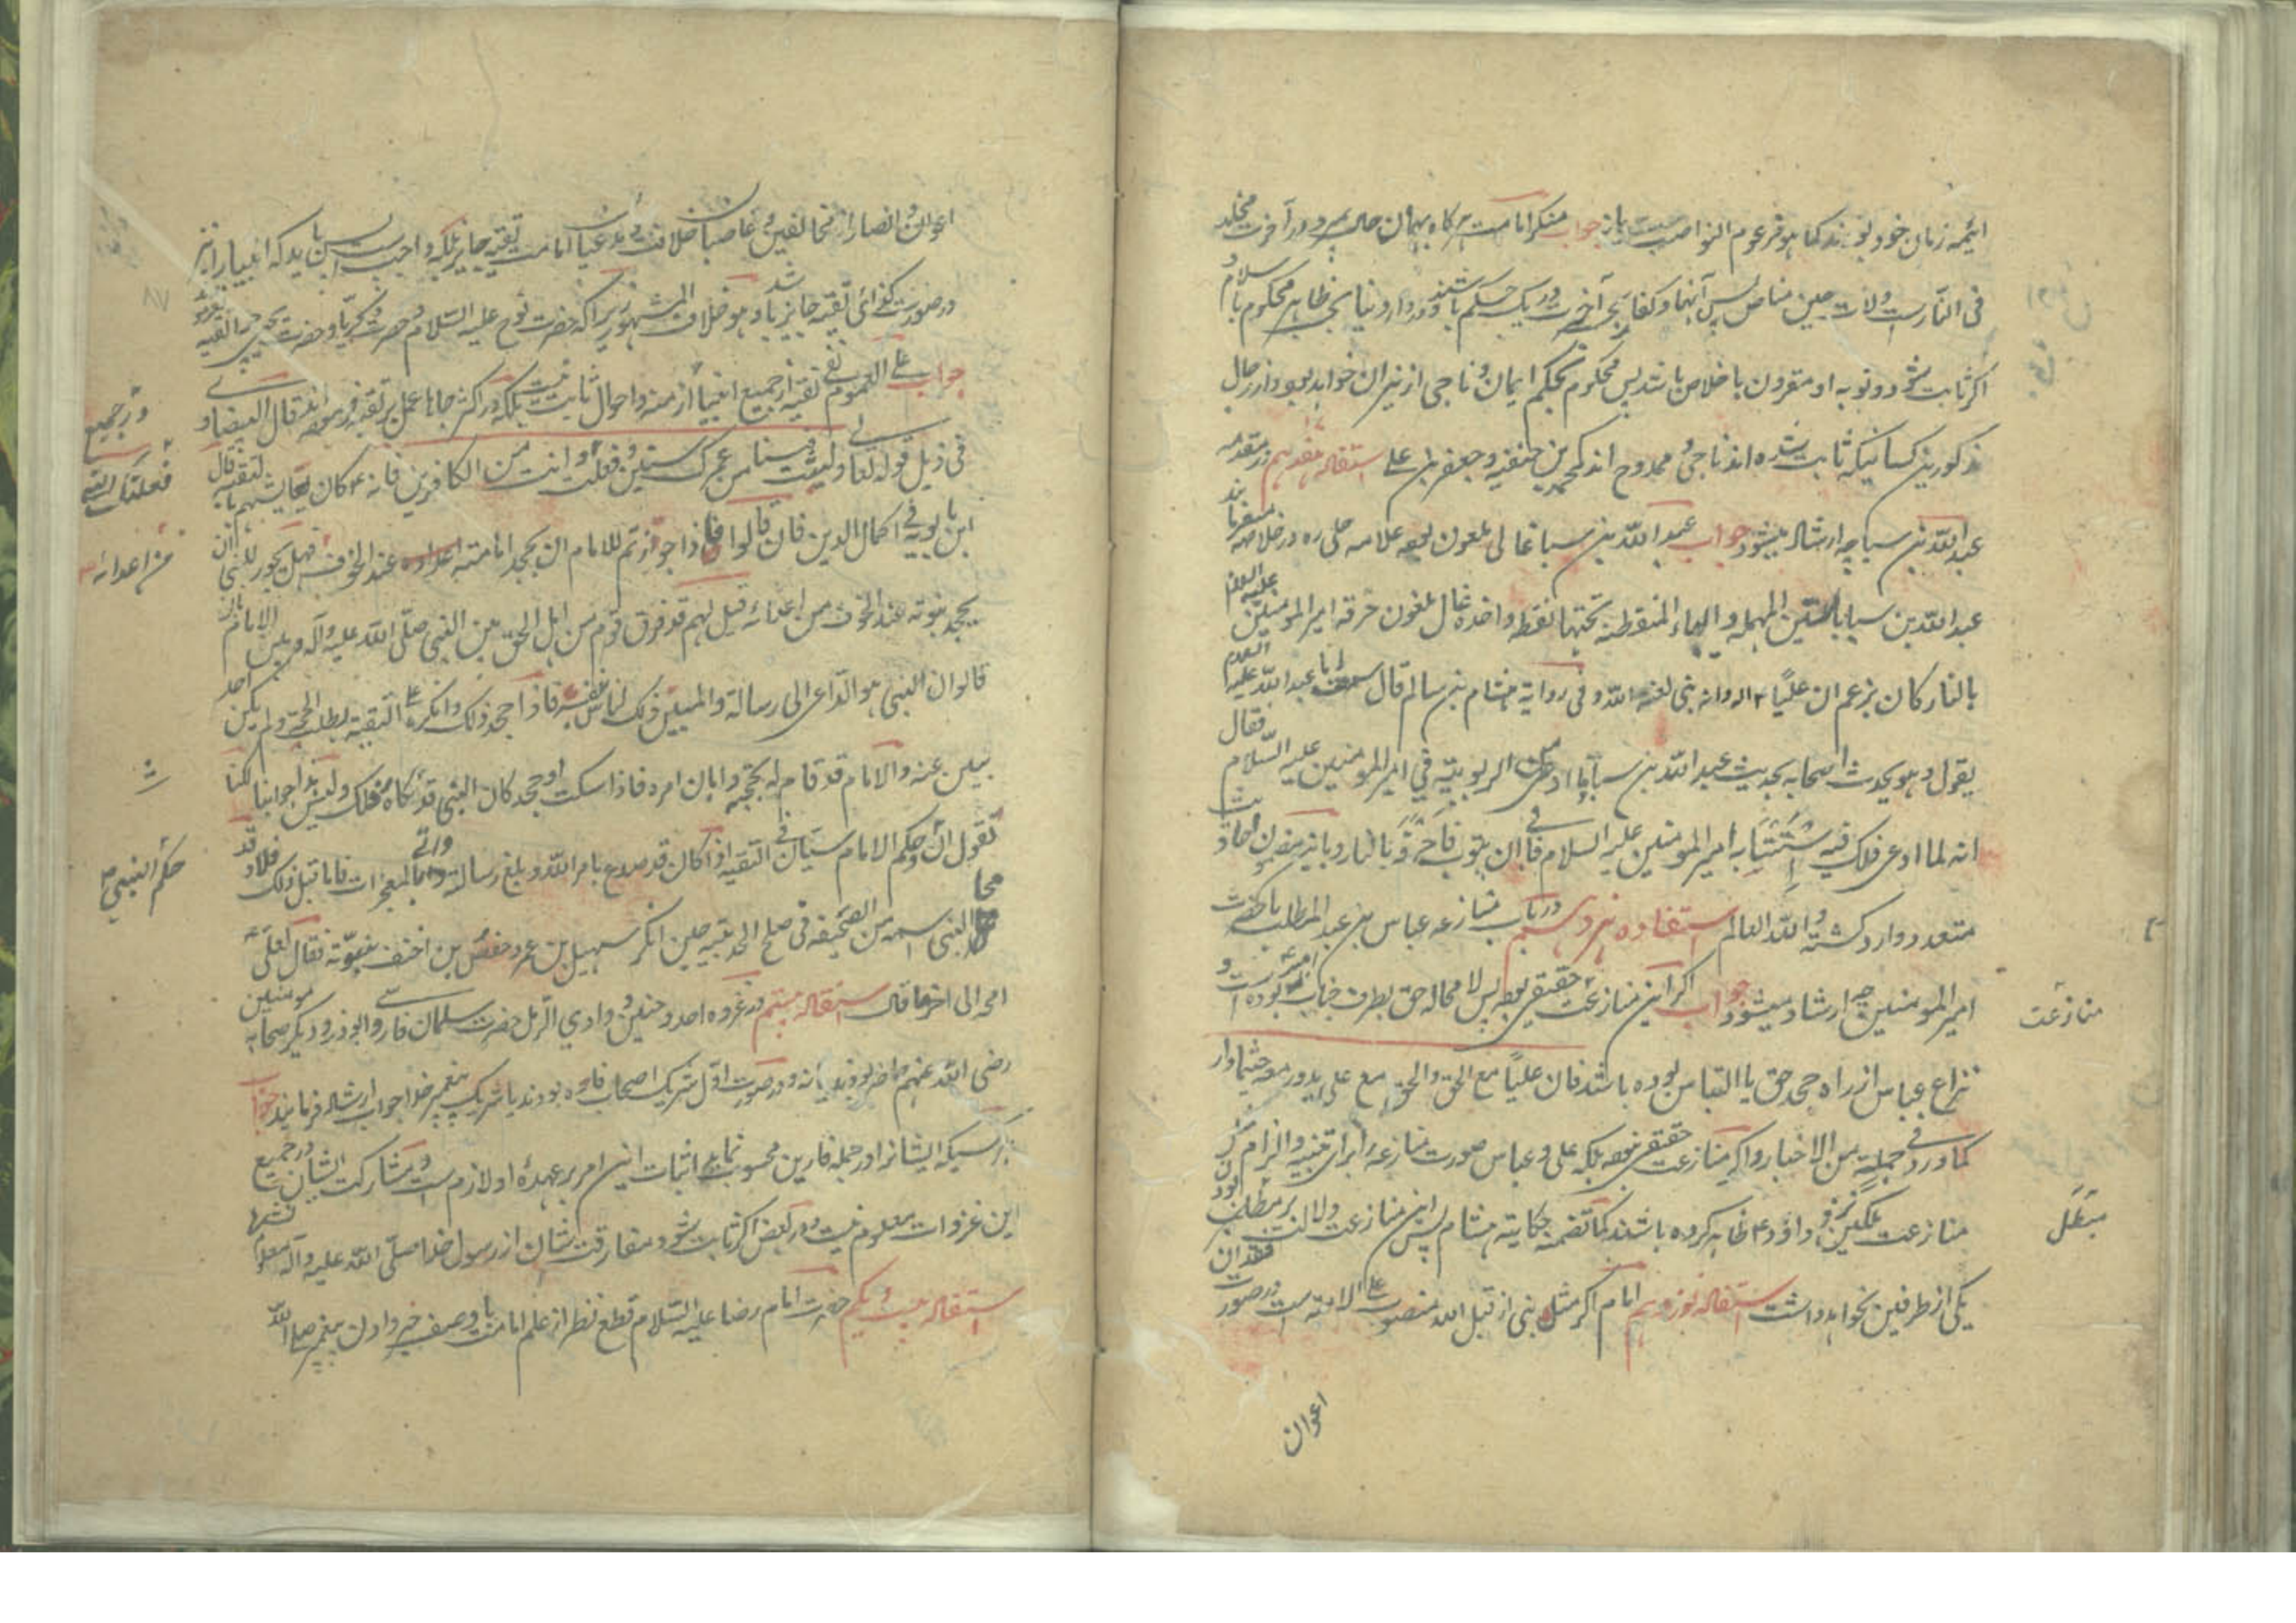 ائمه زمان خود بودند کما هو مزعوم النواصب یا نه جواب منکر امامت هر کاه بهمان حال بمیرد در آخرت مخلد
فی النار ست ولات حین مناص پس آنها و کفار بحسب آخرت در یک حکم باشند و در دار دنیا بحسب ظاهر محکوم باسلام و
اکر ثابت شود و توبه او مقرون باخلاص باشد پس محکوم بحکم ایمان و ناجی از نیران خواهد بود و از رجال
مذکورین کسانیکه ثابت شده اند ناجی و ممدوح اند کمحمد بن حنفیه و جعفر بن علی استفاله هفدهم در مقدمه
عبد الله بن سبا چه ارشاد میشود جواب عبد الله بن سبا غالی ملعون بوده علامه حلی ره در خلاصه میفرماید
عبد الله بن سبا بالسین المهمله و الباء المنقوطة تحتها نقطه واحده غال ملعون حرقه امیر المومنین علیه السلم
بالنار کان یزعم ان علیا ع اله وانه نبی لعنه الله و فی روایة هشام بن سالم قال سمعت ابا عبد الله علیه السلام
یقول و هو یحدث اصحابه بحدیث عبد الله بن سبا و ما ادعی من الربوبیة فی امیر المومنین علیه السلام فقال
انه لما ادعی ذلک فیه استتابه امیر المومنین علیه السلام فابی ان یتوب فاحرقه بالنار و باین مضمون احادیث
متعدد وارد کشته و الله العالم استفاده هژدهم در باب منازعه عباس بن عبد المطلب با حضرت
امیر المومنین چه ارشاد میشود جواب اکر این منازعت حقیقی بوده پس لا محاله حق بطرف جناب امیر ع بوده است و
منازعت
نزاع عباس از راه جحد حق یا التباس بوده باشد فان علیا مع الحق و الحق مع علی یدور معه حیثما دار
کما ورد فی جملة من الاخبار و اکر منازعت حقیقی نبوده بلکه علی و عباس صورت منازعه را برای تنبیه و الزام
منازعت ملکین نزد داود ع ظاهر کرده باشند کما تضمنه حکایته هشام پس این منازعت دلالت بر مطلب
یکی از طرفین نخواهد داشت استفاله نوزدهم امام اکر مثل نبی از قبل الله منصوب علی الامة ست در صورت فقدان
اعوان
اعوان و انصار از مخالفین و غاصبان خلافت و مدعیان امامت تقیه جایز بلکه واجب است پس باید که انبیا را نیز
در صورت کذائی تقیه جایز باشد و هو خلاف المشهور زیرا که حضرت نوح علیه السلام و حضرت زکریا و حضرت یحیی چرا تقیه نفرمودند
جواب علی العموم نفی تقیه از جمیع انبیا در ازمنه و احوال ثابت نیست بلکه در اکثر جاها عمل بر تقیه فرموده اند قال البیضاوی
و در جمیع
فی ذیل قوله تعالی ولبثت فینا من عمرک سنین و فعلت و انت من الکافرین فانه ع کان یعایشهم بالتقیه قال
فعلتک التی
ابن بابویه فی اکمال الدین فان قالوا فاذا جوزتم للامام ان یجحد امامته اعداءه عند الخوف فهل یجوز للنبی ان
من اعدائه
یجحد نبوته عند الخوف من اعدائه قیل لهم قد فرق قوم من اهل الحق بین النبی صلی الله علیه و آله و بین الامام بان
قالوا ان النبی هو الداعی الی رسالة و المبین ذلک للناس بنفسه فاذا جحد ذلک و انکره علی التقیه بطلت الحجة ولم یکن احد
یبین عنه و الامام قد قام له بحجته و ابان امره فاذا سکت او جحد کان النبی قد کفاه ذلک و لیس هذا جوابنا لکنا
نقول ان حکم الامام سیان فی التقیه اذا کان قد صدع بامر الله و بلغ رسالته و اتی بالمعجزات فاما قبل ذلک فلا و قد
حکم النبی ص
محا النبی اسمه من الصحیفة فی صلح الحدیبیه حین انکر سهیل بن عمرو و حفص بن احنف نبوته فقال لعلی ع
امحه الی اخر ما قال استفاله بیستم در غزوه احد و حنین و وادی الرمل حضرت سلمان فارسی و ابو ذر و دیکر صحابه مومنین
رضی الله عنهم حاضر بودند یا نه و در صورت اول شریک اصحاب فار بودند یا شریک پیغمبر خدا جواب ارشاد فرمایند جواب
هر کسیکه ایشانرا در جمله فارین محسوب نماید اثبات این امر بر عهدۀ او لازم ست و مشارکت ایشان در جمیع
این غزوات معلوم نیست و در بعض اکر ثابت شود مفارقت شان از رسول خدا صلی الله علیه و آله معلوم نشد
استفاله بیست و یکم حضرت امام رضا علیه السلام قطع نظر از علم امامت با وصف خبر دادن پیغمبر صلی الله